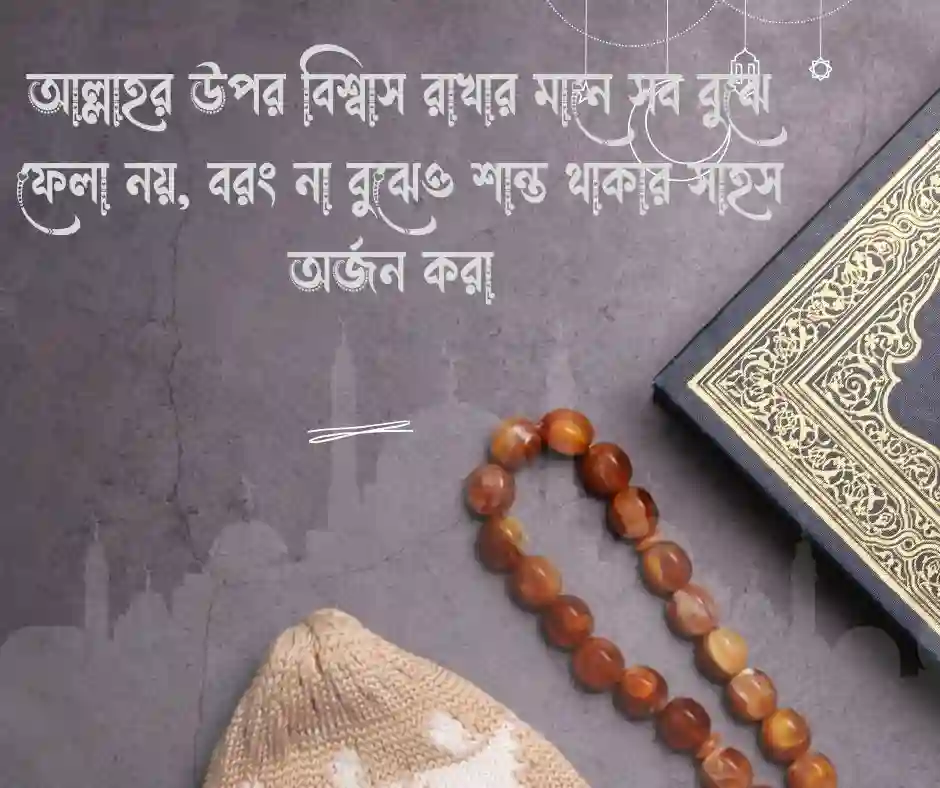 আল্লাহর উপর বিশ্বাস রাখার মানে সব বুঝে
ফেলা নয়, বরং না বুঝেও শান্ত থাকার সাহস
অর্জন করা